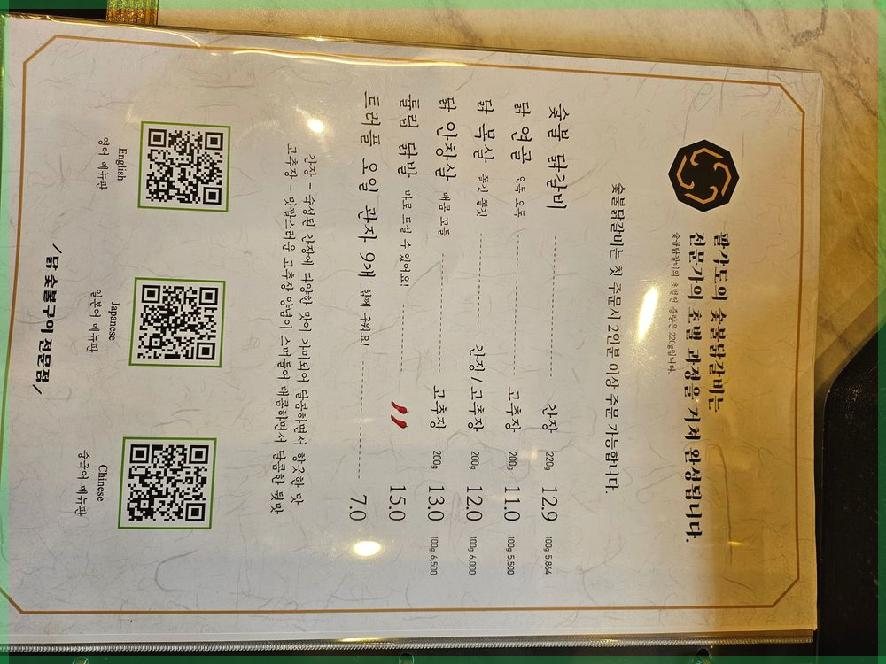 팔각도의 숯불닭갈비는
전문가의 초벌 과정을 거쳐 완성됩니다.
숯불닭갈비의 초벌전 중량은 220g입니다.
숯불닭갈비는 첫 주문시 2인분 이상 주문 가능합니다.
숯불 닭갈비 간장 220g 12.9 100g 5.864
닭 연골 오독 오독 고추장 200g 11.0 100g 5.500
닭 목살 쫄깃 쫄깃 간장/고추장 200g 12.0 100g 6.000
닭 안창살 매콤 고들 고추장 200g 13.0 100g 6.500
통뼈 닭발 바로 드실 수 있어요! 15.0
트러플 오일 관자 9개 함께 구워요! 7.0
간장 - 숙성된 간장에 다양한 맛이 가미되어 달콤하면서 향긋한 맛
고추장 - 맛깔스러운 고추장 양념이 스며들어 매콤하면서 달콤한 뒷맛
English
영어 메뉴판
Japanese
일본어 메뉴판
Chinese
중국어 메뉴판
/닭 숯불구이 전문점/